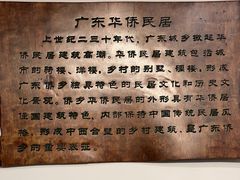 广东华侨民居
上世纪二三十年代，广东城乡掀起华
侨民居建筑高潮。华侨民居建筑包括城
市的骑楼、洋楼，乡村的别墅、碉楼，形成
广东侨乡独具特色的民居文化和历史文
化景观。侨乡华侨民居的外形具有华侨居
住国建筑特色，内部保持中国传统民居风
格，形成中西合璧的乡村建筑，是广东侨
乡的重要表征。